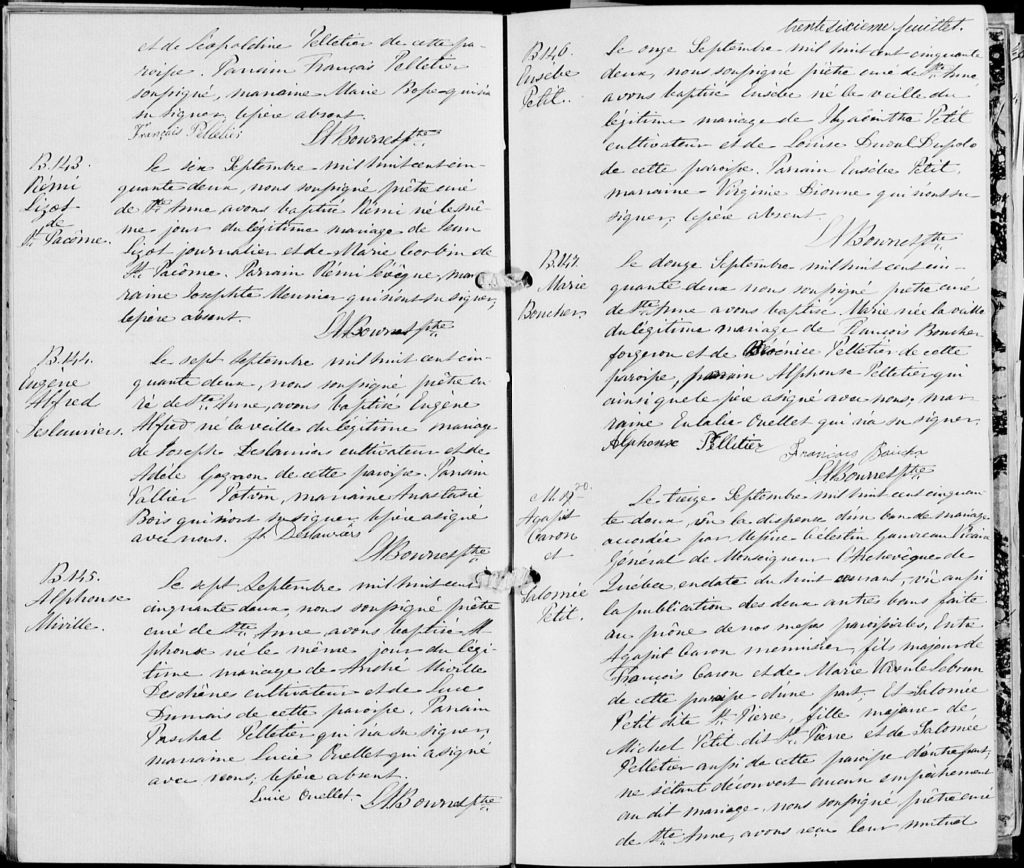 et de Léopoldine Pelletier de cette pa-
roisse. Parrain François Pelletier
soussigné, marraine Marie Bossé qui n'a
su signer, le père absent.
François Pelletier
Ptre.
B. 143.
Rémi
Lizot
de
St. Pacôme.
Le six Septembre mil huit cent cin-
quante deux, nous soussigné prêtre curé
de Ste. Anne avons baptisé Rémi né le mê-
me jour du légitime mariage de
Lizot journalier et de Marie Corbin de
St. Pacôme. Parrain Rémi Lévêque, mar-
raine Josephte Meunier qui n'ont su signer,
le père absent.
Ptre.
B. 144.
Eugène
Alfred
Deslauriers.
Le sept septembre mil huit cent cin-
quante deux, nous soussigné prêtre cu-
ré de Ste. Anne, avons baptisé Eugène
Alfred né la veille du légitime mariage
de Joseph Deslauriers cultivateur et de
Adèle Gagnon de cette paroisse. Parrain
Vallier Potvin, marraine Anastasie
Bois qui n'ont su signer, le père a signé
avec nous. Js. Deslauriers
Ptre
B. 145.
Alphonse
Miville.
Le sept Septembre mil huit cent
cinquante deux, nous soussigné prêtre
curé de Ste. Anne, avons baptisé Al-
phonse né le même jour du légi-
time mariage de André Miville
Deschènes cultivateur et de Luce
Dumais de cette paroisse. Parrain
Paschal Pelletier qui n'a su signer,
marraine Lucie Ouellet qui a signé
avec nous, le père absent.
Lucie Ouellet.
Ptre.
trente sixième feuillet.
B. 146.
Eusèbe
Petit.
Le onze Septembre mil huit cent cinquante
deux, nous soussigné prêtre curé de Ste. Anne
avons baptisé Eusèbe né la veille du
légitime mariage de Hyacinthe Petit
cultivateur et de Louise Duval Dupolo
de cette paroisse. Parrain Eusèbe Petit,
marraine Virginie Dionne qui n'ont su
signer, le père absent.
Ptre
B. 147.
Marie
Boucher.
Le douze Septembre mil huit cent cin-
quante deux nous soussigné prêtre curé
de Ste. Anne avons baptisé Marie née la veille
du légitime mariage de François Boucher
forgeron et de Bérénice Pelletier de cette
paroisse, parrain Alphonse Pelletier qui
ainsi que le père a signé avec nous; mar-
raine Eulalie Ouellet qui n'a su signer.
Alphonse Pelletier
François
Ptre
M. 19
Agapit
Caron
et
Salomée
Petit.
Le treize Septembre mil huit cent cinquan-
te deux, vû la dispense d'un ban de mariage
accordée par Messire Célestin Gauvreau Vicaire
Général de Monseigneur l'Archevêque de
Québec en date du huit courant, vû aussi
la publication des deux autres bans faite
au prône de nos messes paroissiales, Entre
Agapit Caron menuisier, fils majeur de
François Caron et de Marie Lebrun
de cette paroisse d'une part, Et Salomée
Petit dite St. Pierre, fille majeure de
Michel Petit dit St. Pierre et de Salomée
Pelletier aussi de cette paroisse d'autre part;
ne s'étant découvert aucun empêchement
au dit mariage, nous soussigné prêtre curé
de Ste. Anne, avons reçu leur mutuel